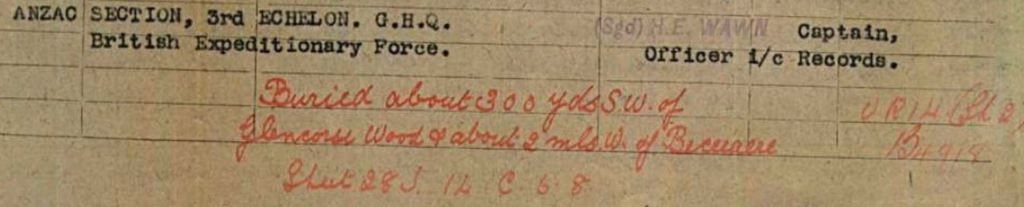 ANZAC SECTION, 3rd ECHELON. G.H.Q.
British Expeditionary Force.
(Sgd) H.E. WAWN Captain,
Officer i/c Records.
Buried about 300 yds S.W. of
Glencorse Wood & about 2 mls. W. of Becelaere
Sheet 28 J. 14 C 6 8